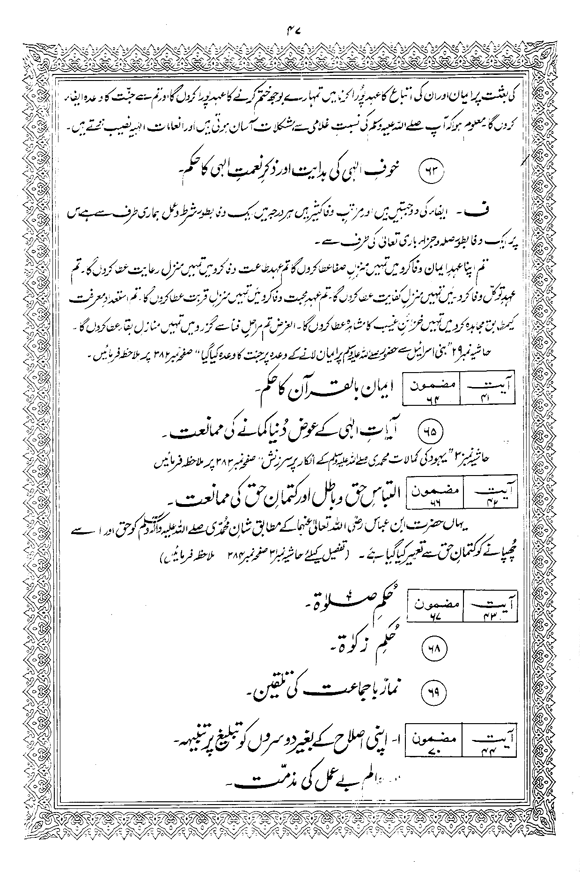 ۴۷
کی بعثت پر ایمان اور ان کی اتباع کا عہد پورا کرنا میں تمہارے بوجھ ختم کرنے کا عہد پورا کروں گا اور تم سے جنت کا وعدہ ایفاء
کروں گا۔ معلوم ہوا کہ آپ صلے اللہ علیہ وسلم کی نسبت غلامی سے مشکلات آسان ہوتی ہیں اور انعامات الہیہ نصیب ہوتے ہیں۔
۶۳ خوفِ الٰہی کی ہدایت اور ذکرِ نعمتِ الٰہی کا حکم۔
ف ۔ ایفاء کی دو جہتیں ہیں اور مراتبِ وفا کثیر ہیں ہر درجہ میں ایک وفا بطور شرط و عمل ہماری طرف سے ہے اس
پر ایک وفا بطور صلہ و جزا باری تعالیٰ کی طرف سے ۔
تم اپنا عہدِ ایمان وفا کرو میں تمہیں منزلِ صفا عطا کروں گا تم عہدِ طاعت وفا کرو میں تمہیں منزلِ رعایت عطا کروں گا۔ تم
عہدِ توکل وفا کرو میں تمہیں منزلِ کفایت عطا کروں گا۔ تم عہدِ محبت وفا کرو میں تمہیں منزلِ قربت عطا کروں گا۔ تم استعدادِ معرفت
کے مطابق مجاہدہ کرو میں تمہیں خزائنِ غیب کا مشاہدہ عطا کروں گا۔ الغرض تم مراحلِ فنا سے گزرو میں تمہیں منازلِ بقا عطا کروں گا۔
حاشیہ نمبر ۲۹ "بنی اسرائیل سے حضور صلے اللہ علیہ وسلم پر ایمان لانے کے وعدہ پر جنت کا وعدہ کیا گیا" صفحہ نمبر ۳۸۲ پر ملاحظہ فرمائیں۔
آیت ۴۱ مضمون ۶۴ ایمان بالقرآن کا حکم۔
۶۵ آیاتِ الٰہی کے عوض دُنیا کمانے کی ممانعت۔
حاشیہ نمبر ۳۰ "یہود کی کمالاتِ محمدی صلے اللہ علیہ وسلم کے انکار پر سرزنش" صفحہ نمبر ۳۸۳ پر ملاحظہ فرمائیں
آیت ۴۲ مضمون ۶۶ التباسِ حق و باطل اور کتمانِ حق کی ممانعت۔
یہاں حضرت ابن عباس رضی اللہ تعالیٰ عنہما کے مطابق شانِ محمدی صلے اللہ علیہ وآلہ وسلم کو حق اور اسے
چھپانے کو کتمانِ حق سے تعبیر کیا گیا ہے ۔ (تفصیل کیلئے حاشیہ نمبر صفحہ نمبر ۳۸۴ ملاحظہ فرمائیں)
آیت ۴۳ مضمون ۶۷ حُکمِ صلوٰۃ۔
۶۸ حُکمِ زکوٰۃ۔
۶۹ نماز باجماعت کی تلقین۔
آیت ۴۴ مضمون ۷۰ ۱۔ اپنی اصلاح کے بغیر دوسروں کو تبلیغ پر تنبیہہ۔
عالمِ بے عمل کی مذمّت۔